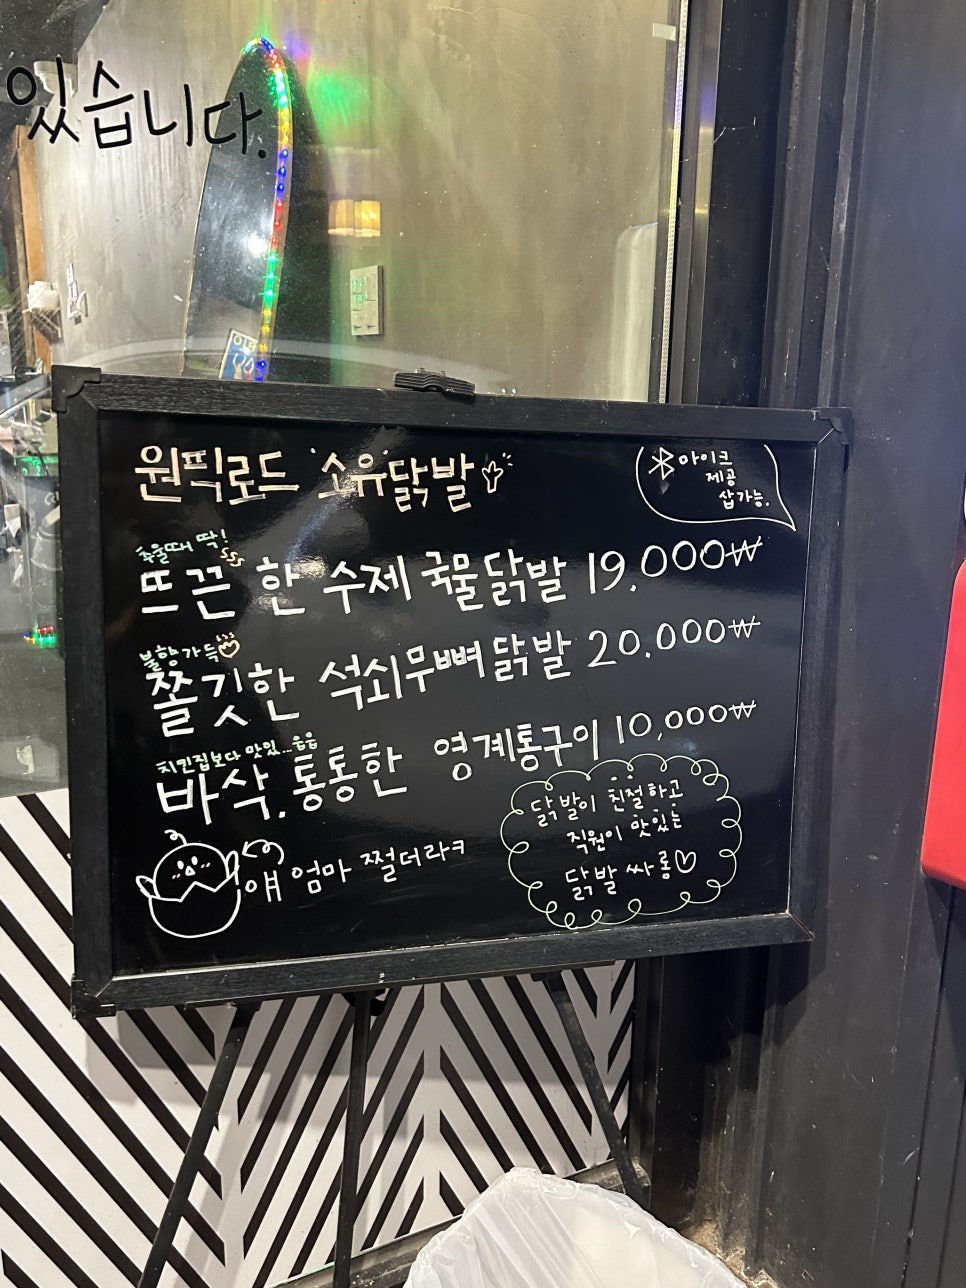 있습니다.
원픽로드 '소유닭발'
아이크
제공
쌉가능.
추울때 딱!
뜨끈한 수제 국물닭발 19.000₩
불향가득
쫄깃한 석쇠무뼈닭발 20.000₩
치킨집보다 맛있...읍읍
바삭.통통한 영계통구이 10,000₩
얘 엄마 쩔더라ㅋ
닭발이 친절하고
직원이 맛있는
닭발 싸롱